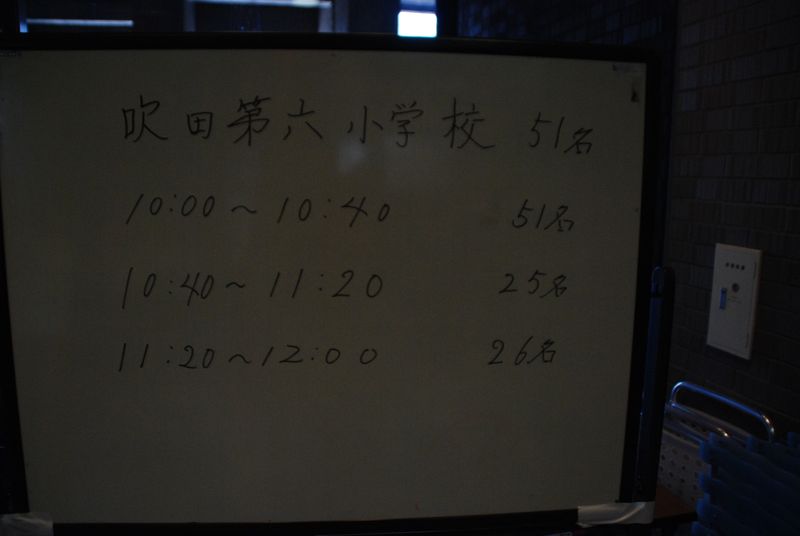 吹田第六小学校 51名
10:00～10:40 51名
10:40～11:20 25名
11:20～12:00 26名